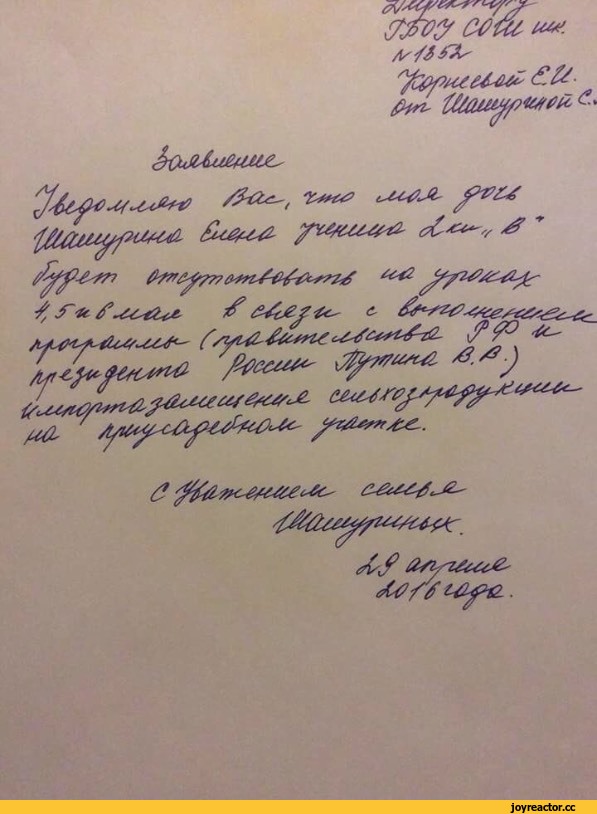 Директору
ГБОУ СОШ шк.
№1352
Корневой Е.И.
от Шашуриной С.
Заявление
Уведомляю Вас, что моя дочь
Шашурина Елена ученица 2 кл „В"
будет отсутствовать на уроках
4, 5 и 6 мая в связи с выполнением
программы (правительства РФ и
президента России Путина В.В.)
импортозамещения сельхозпродукции
на приусадебном участке.
С Уважением семья
Шашуриных.
29 апреля
2016 года.
joyreactor.cc